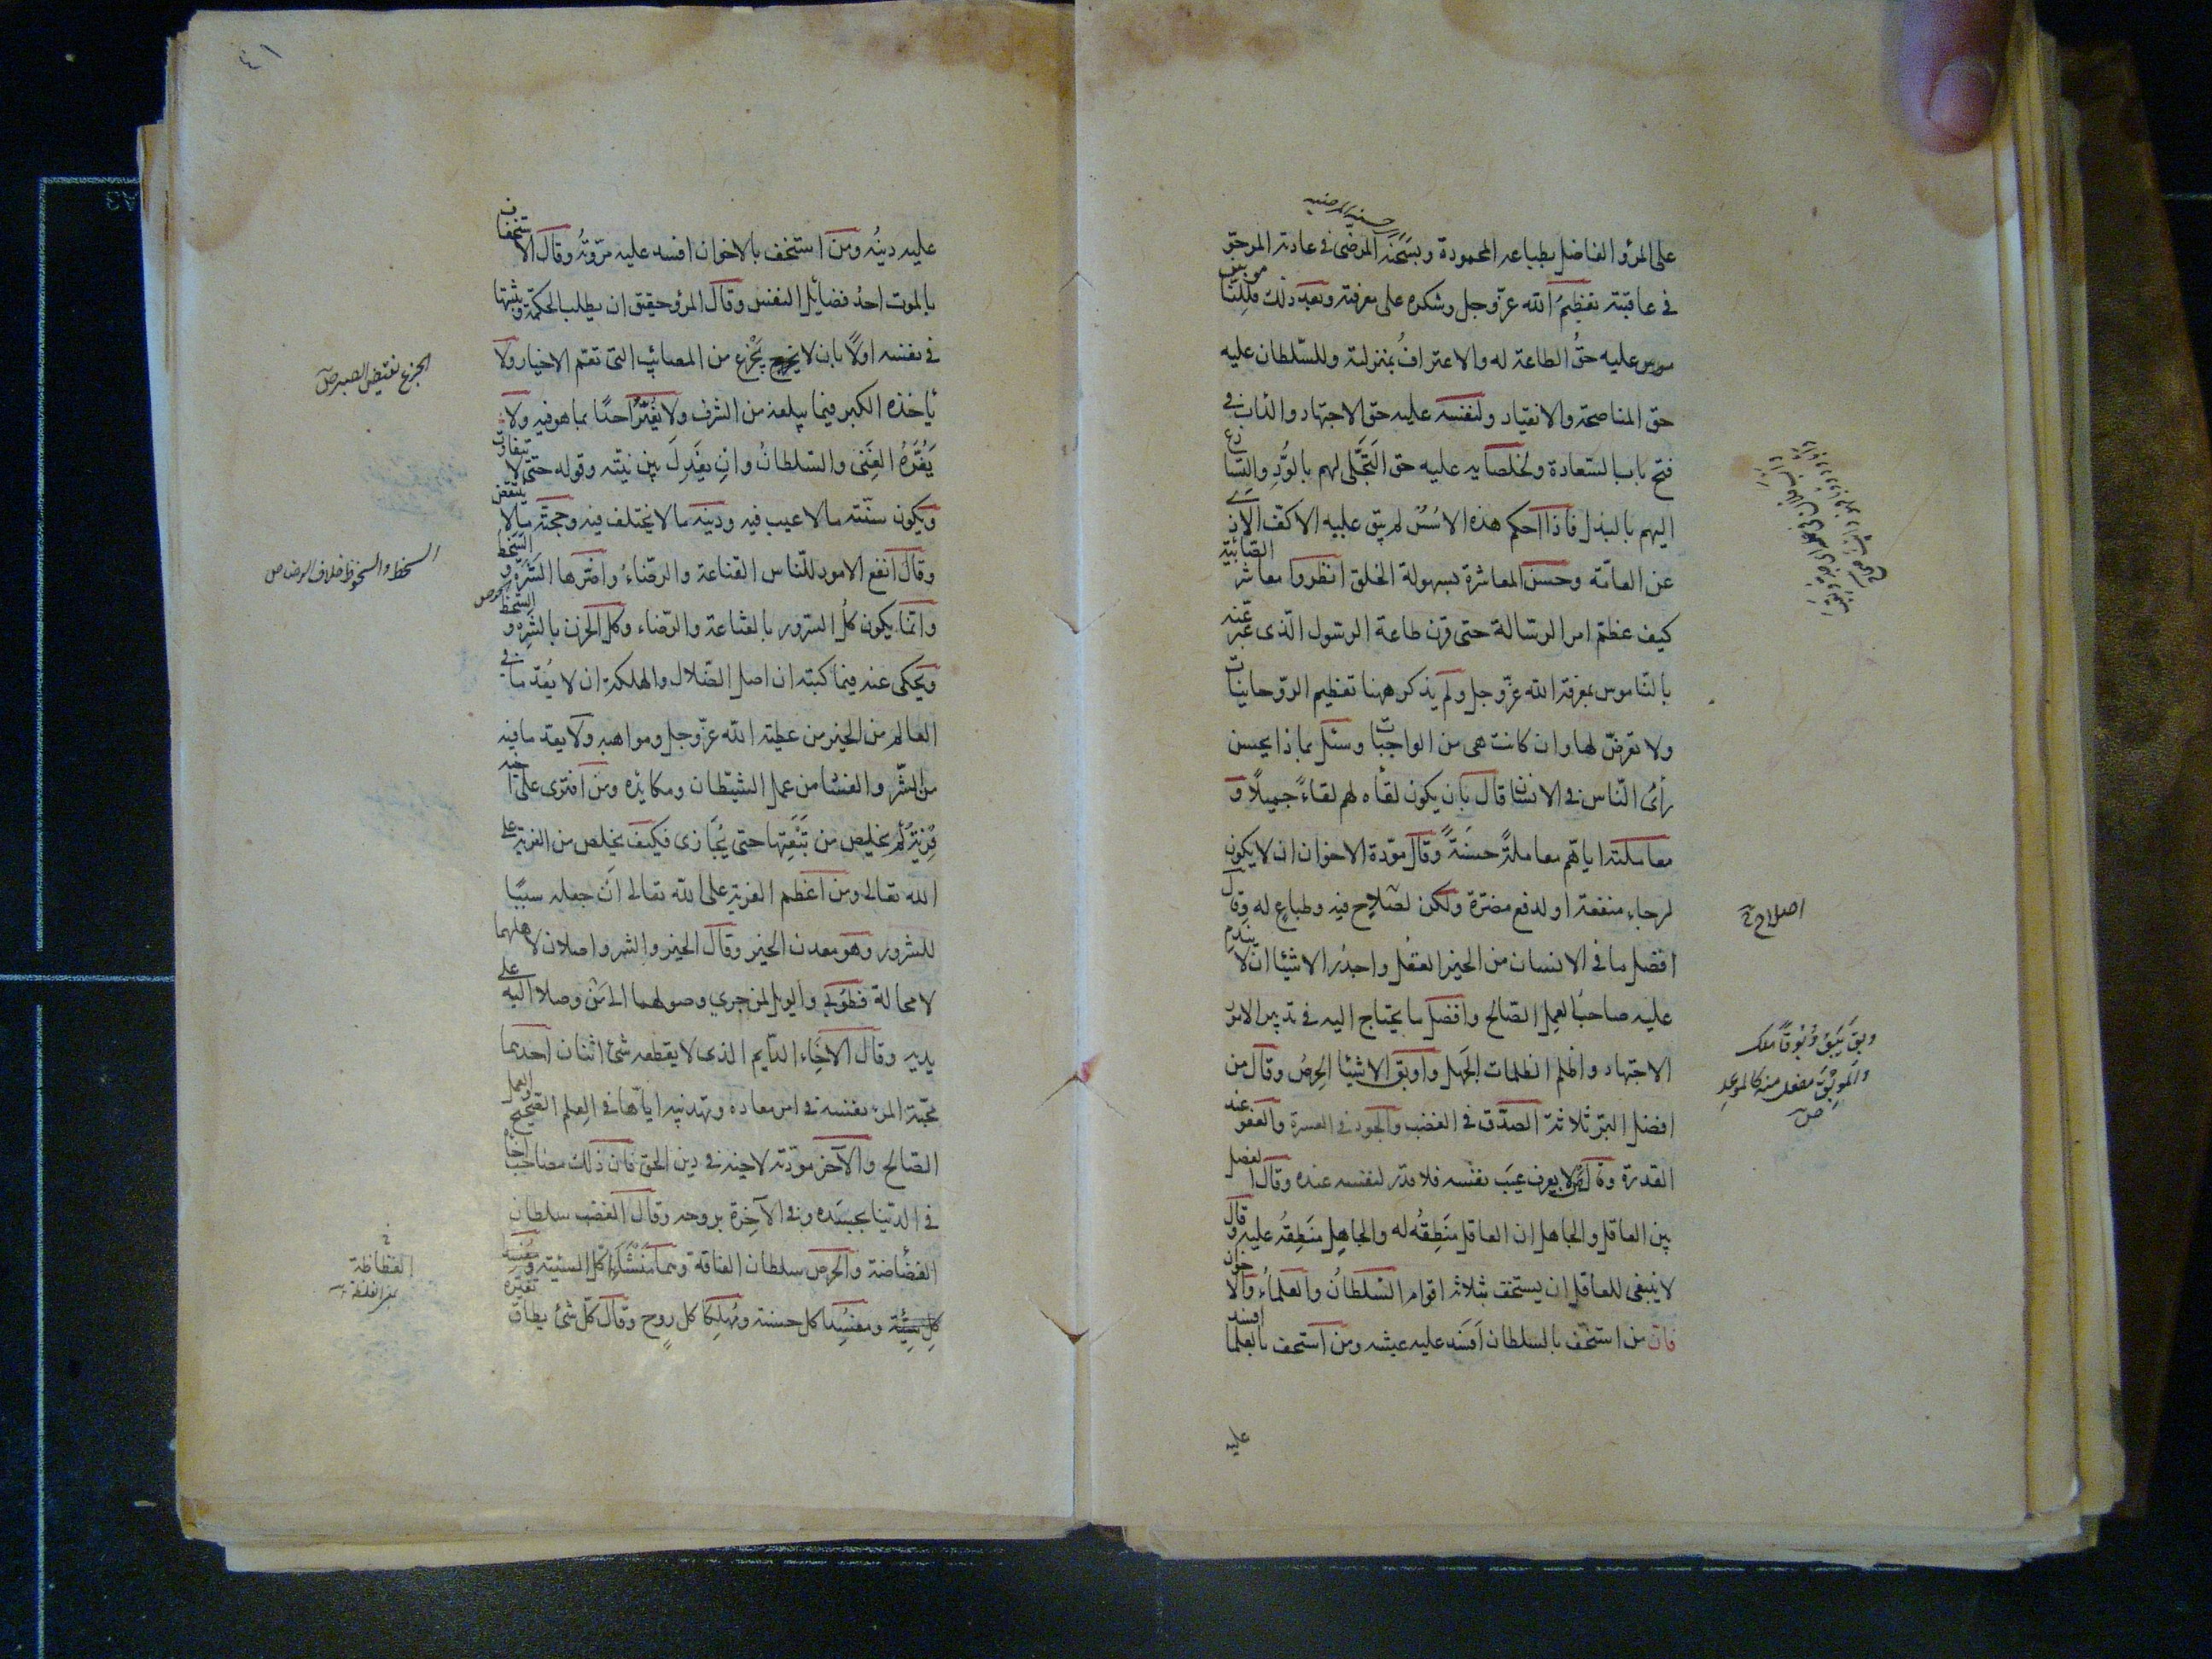 على المرؤ الفاضل بطباعه المحمودة وبسجته المرضى في عادته المرجو
في عاقبته تعظيم الله عز وجل وشكره على معرفته وبعد ذلك فللنا
موس عليه حق الطاعة له والاعتراف بمنزلته وللسلطان عليه
حق المناصحة والانقياد ولنفسه عليه حق الاجتهاد والداب في
فتح باب السعادة ولخلصايه عليه حق التجلى لهم بالود والتسا
رع
اليهم بالبذل فاذا احكم هذه الاسس لم يبق عليه الا كف الاذى
عن العامة وحسن المعاشرة بسهولة الخلق انظروا معاشر
الصابئة
كيف عظم امر الرسالة حتى قرن طاعة الرسول الذى عبر عنه
بالناموس بمعرفة الله عز وجل ولم يذكر ههنا تعظيم الروحانيات
ولا تعرض لها وان كانت هى من الواجبات وسئل بماذا يحسن
رأى الناس في الانسان قال بان يكون لقاه لهم لقاء جميلا و
معاملته اياهم معاملة حسنة وقال مودة الاخوان ان لا يكون
لرجاء منفعة او لدفع مضرة ولكن لصلاح فيه وطباع له وقال
اصلاح
افضل ما في الانسان من الخير العقل واجدر الاشيا ان لا يندم
عليه صاحب العمل الصالح وافضل ما يحتاج اليه في تدبير الامور
الاجتهاد واظلم الظلمات الجهل واوبق الاشيا الحرص وقال من
وبق يبق وبوقا هلك
والموبق مفعل منه كالموعد
ص
افضل البر ثلاثة الصدق في الغضب والجود في العسرة والعفو عند
القدرة وقال من لا يعرف عيب نفسه فلا قدر لنفسه عنده وقال الفصل
بين العاقل والجاهل ان العاقل منطقه له والجاهل منطقه عليه وقال
لا ينبغى للعاقل ان يستخف بثلاثة اقوام السلطان والعلماء والاخوان
فان من استخف بالسلطان افسد عليه عيشه ومن استخف بالعلما افسد
عليه
٤١
عليه دينه ومن استخف بالاخوان افسد عليه مروته وقال الاستخفاف
بالموت احد فضايل النفس وقال المرؤ حقيق ان يطلب الحكمة ويثبتها
في نفسه اولا بان لا يجزع من المصائب التى تعم الاخيار ولا
الجزع نقيض الصبر ص
يأخذه الكبر فيما يبلغه من الشرف ولا يعير احدا بما هو فيه ولا
يغره الغنى والسلطان وان يعدل بين نيته وقوله حتى لا يتفاوت
ويكون سنته ما لا عيب فيه ودينه ما لا يختلف فيه وحجته ما لا ينتقض
وقال انفع الامور للناس القناعة والرضاء واضرها الشره و السخط
السخط والسخوط خلاف الرضا ص
وانما يكون كل السرور بالقناعة والرضاء وكل الحزن بالشره و السخط
ويحكى عنه فيما كتبه ان اصل الضلال والهلكة ان لا يعد ما في
العالم من الخير من عطية الله عز وجل ومواهبه ولا يعد ما فيه
من الشر والفساد من عمل الشيطان ومكايده ومن افترى على اخيه
فرية لم يخلص من تبعتها حتى يجازى فكيف يخلص من الفرية على
الله تعالى ومن اعظم الفرية على الله تعالى ان جعله سببا
للشرور وهو معدن الخير وقال الخير والشر واصلان لاهلهما
لا محالة فطوبى والويل لمن جرى وصولهما الى من وصلا اليه على
يديه وقال الاخاء الدايم الذى لا يقطعه شئ اثنان احدهما
محبة المرء نفسه في امر معاده وتهذيبه اياها في العلم الصحيح والعمل
الصالح والآخر مودته لاخيه في دين الحق فان ذلك مصاحب اخاه
في الدنيا بجسده وفي الآخرة بروحه وقال الغضب سلطان
الفضاضة والحرص سلطان الفاقة وهما منشأ كل السيئة ومفسد
الفظاظة
كل سيئة ومفسدا كل حسنة ومهلكا كل روح وقال كل شئ يطاق
تغيره